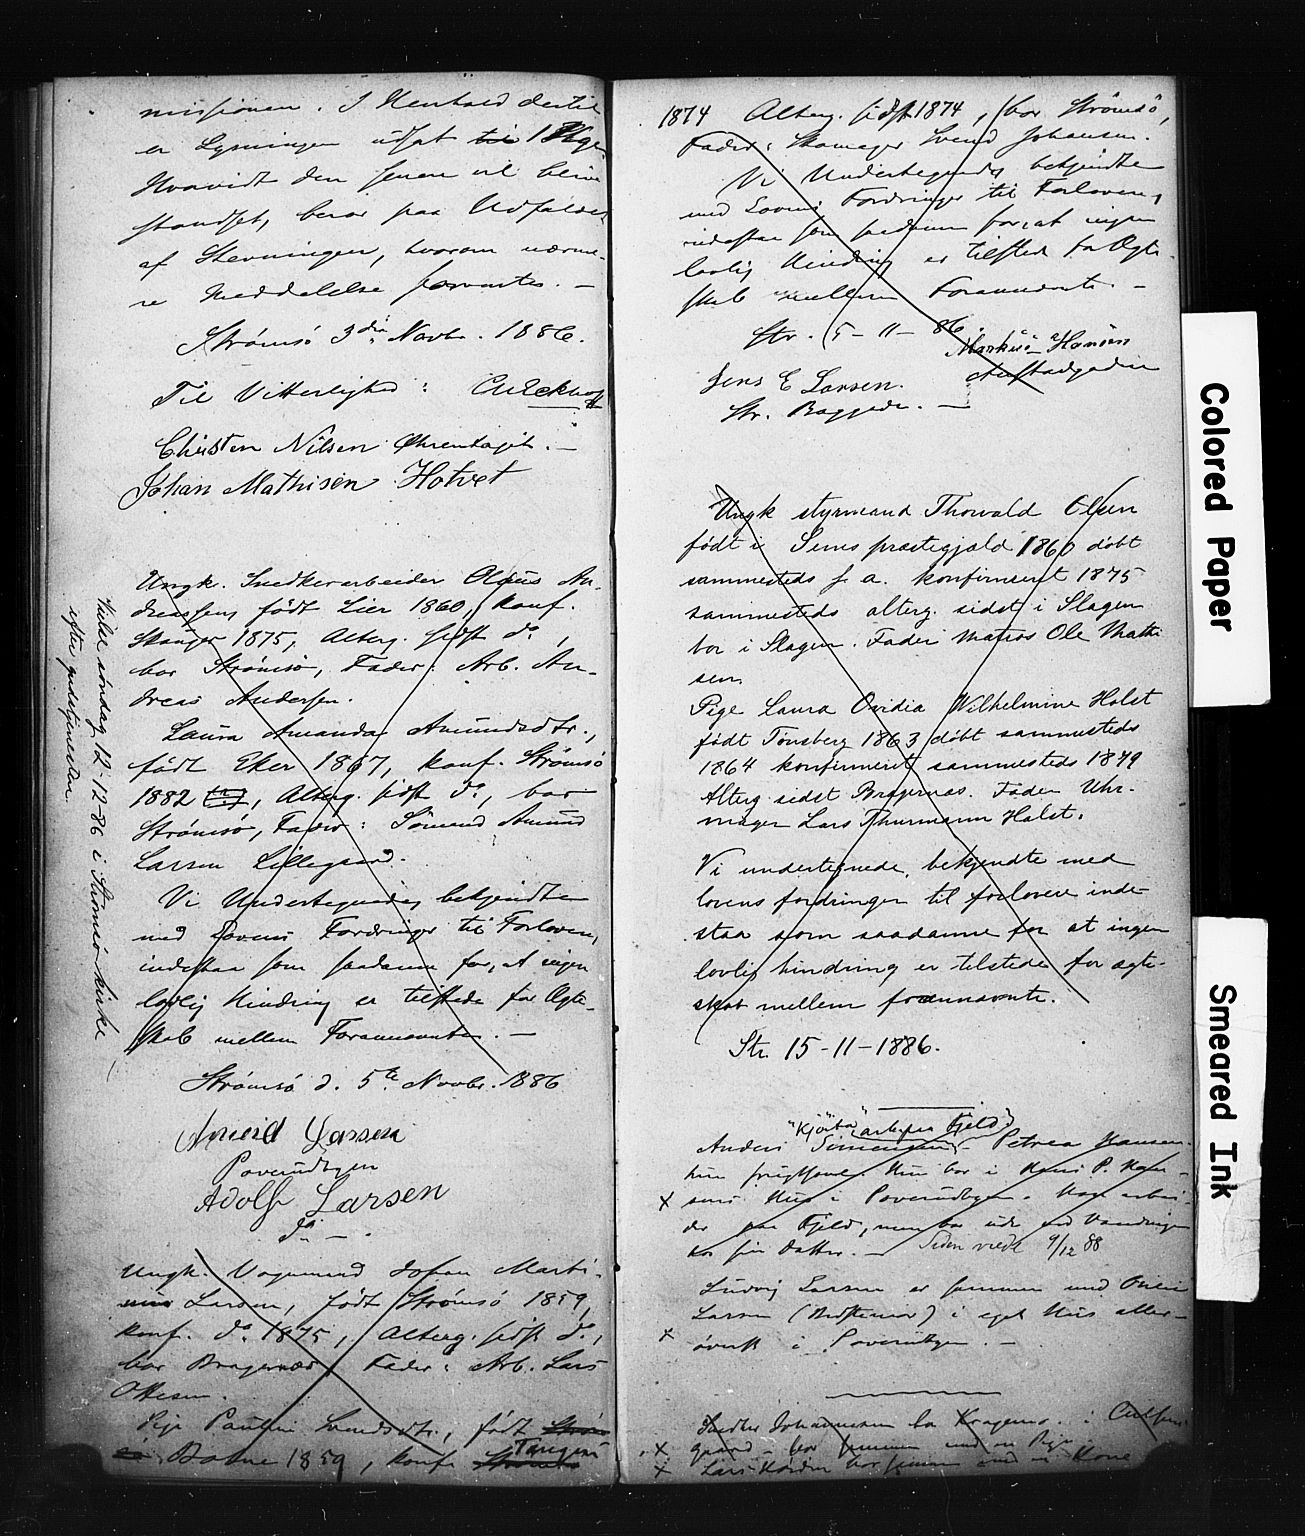 missionen. I Henhold dertil
er Lysningen udsat til 1
Hvorvidt den senere vil blive
standset, beror paa Udfaldet
af Stevningen, hvorom nærme-
re Meddelelse forventes. —
Strømsø 3die Novbr. 1886.
Til Vitterlighed:
Christen Nilsen Øhrentajet. —
Johan Mathisen Hotvet
Ungk. Snedkerarbeider Olaus An-
dreassen, født Lier 1860, konf.
Skoger 1875, Alterg. sidst do,
bor Strømsø, Fader: Arb. An-
dreas Andersen.
Laura Amanda Amundsdtr.,
født Eker 1867, konf. Strømsø
1882, Alterg. sidst do, bor
Strømsø, Fader: Sömand Amund
Larsen Lillegaard.
Vi Undertegnede, bekjendte
med Lovens Fordringer til Forlovere,
indestaa som saadanne for, at ingen
lovlig Hindring er tilstede for Ægte-
skab mellem Forannævnte. —
Strømsø d. 5te Novbr. 1886
Amund Larsen
Poverudbyen
Adolf Larsen
do —.
Vielse søndag 12-12-86 i Strømsø kirke
efter gudstjenesten
Ungk. Vognmand Johan Marti-
nius Larsen, født Strømsø 1859,
konf. do 1875, Alterg. sidst do,
bor Bragernæs, Fader: Arb. Lars
Ottesen.
Pige Pauline Svendsdtr., født Strøm-
sø Borne 1859, konf. Strømsø Tangen
1874 Alterg. sidst 1874, bor Strömsö,
Fader: Skomager Svend Johansen.
Vi Undertegnede, bekjendte
med Lovens Fordringer til Forlovere,
indestaa som saadanne for, at ingen
lovlig Hindring er tilstede for Ægte-
skab mellem Forannævnte. —
Str. 5-11-86.
Markus Hansen
Jens E Larsen.
Str. Baggade. —
Ungk styrmand Thorvald Olsen
født i Sems præstegjæld 1860 døbt
sammesteds s. a. konfirmeret 1875
sammesteds alterg. sidst i Slagen
bor i Slagen. Fader matros Ole Mathi
sen
Pige Laura Ovidia Wilhelmine Holst
født Tønsberg 1863 døbt sammesteds
1864 konfirmeret sammesteds 1879
Alterg sidst Bragernæs. Fader Uhr-
mager Lars Thurmann Holst.
Vi undertegnede, bekjendte med
lovens fordringer til forlovere inde-
staa som saadanne for at ingen
lovlig hindring er tilstede for ægte-
skab mellem forannævnte.
Str. 15-11-1886.
"Kjörbo" arb. paa Fjeld
Anders Simensen – Petrea Hansen.
hun frugtsom. Hun bor i Hans P. Han-
x sens Hus i Poverudbyen. Han arbei-
der paa Fjeld, men bor ude ved Vandringen
hos sin Datter. — Siden viede 9/12 88
Ludvig Larsen er sammen med
Larsen (Bedstemor) i eget Hus aller-
x øverst i Poverudbyen. —
Johannesen bor Kragerø. i
x gaard – bor sammen med en Pige.
x Lars bor sammen med en Kone
Colored Paper
Smeared Ink